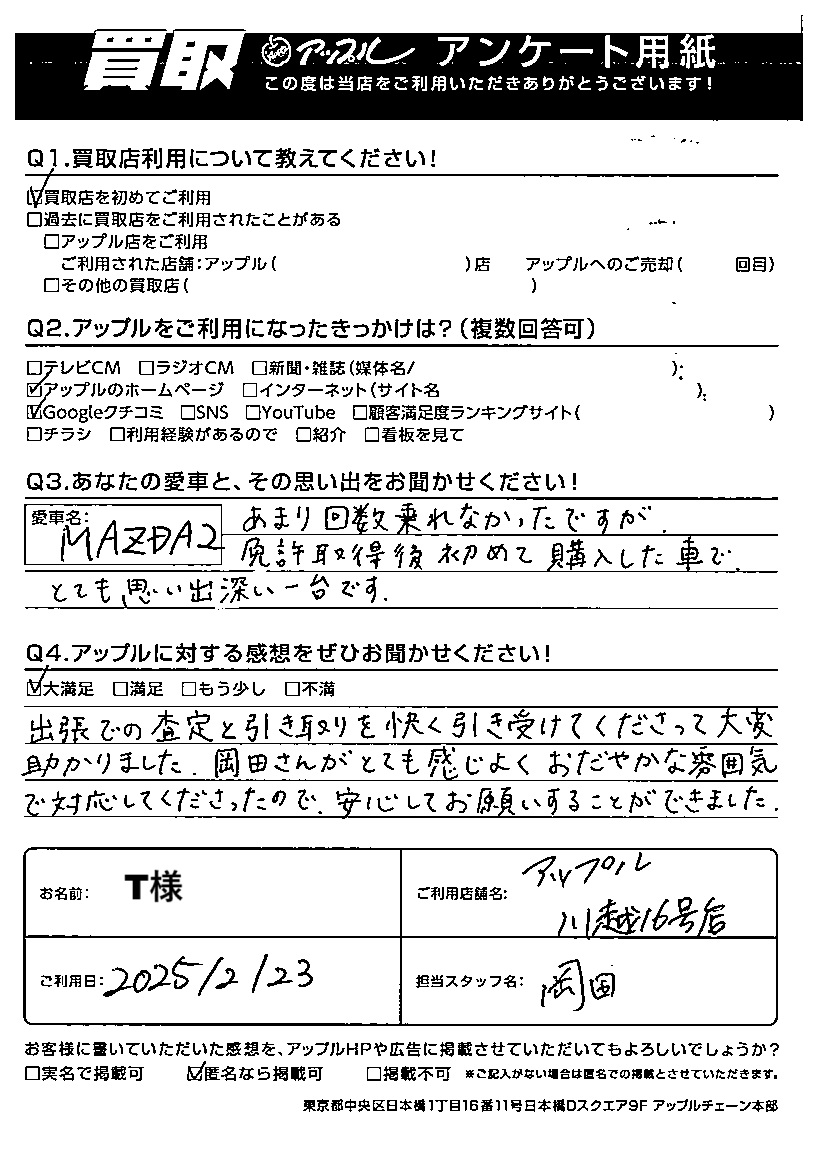 買取 アップル アンケート用紙
この度は当店をご利用いただきありがとうございます!
Q1.買取店利用について教えてください!
☑買取店を初めてご利用
□過去に買取店をご利用されたことがある
□アップル店をご利用
ご利用された店舗:アップル( )店 アップルへのご売却( 回目)
□その他の買取店( )
Q2.アップルをご利用になったきっかけは?(複数回答可)
□テレビCM □ラジオCM □新聞・雑誌(媒体名/ )
☑アップルのホームページ □インターネット(サイト名 )
☑Googleクチコミ □SNS □YouTube □顧客満足度ランキングサイト( )
□チラシ □利用経験があるので □紹介 □看板を見て
Q3.あなたの愛車と、その思い出をお聞かせください!
愛車名: MAZDA2 あまり回数乗れなかったですが、
免許取得後初めて購入した車で、
とても思い出深い一台です.
Q4.アップルに対する感想をぜひお聞かせください!
☑大満足 □満足 □もう少し □不満
出張での査定と引き取りを快く引き受けてくださって大変
助かりました.岡田さんがとても感じよくおだやかな雰囲気
で対応してくださったので、安心してお願いすることができました.
お名前: T様
ご利用店舗名: アップル
川越16号店
ご利用日: 2025/2/23
担当スタッフ名: 岡田
お客様に書いていただいた感想を、アップルHPや広告に掲載させていただいてもよろしいでしょうか?
□実名で掲載可 ☑匿名なら掲載可 □掲載不可 ※ご記入がない場合は匿名での掲載とさせていただきます。
東京都中央区日本橋1丁目16番11号日本橋Dスクエア9F アップルチェーン本部